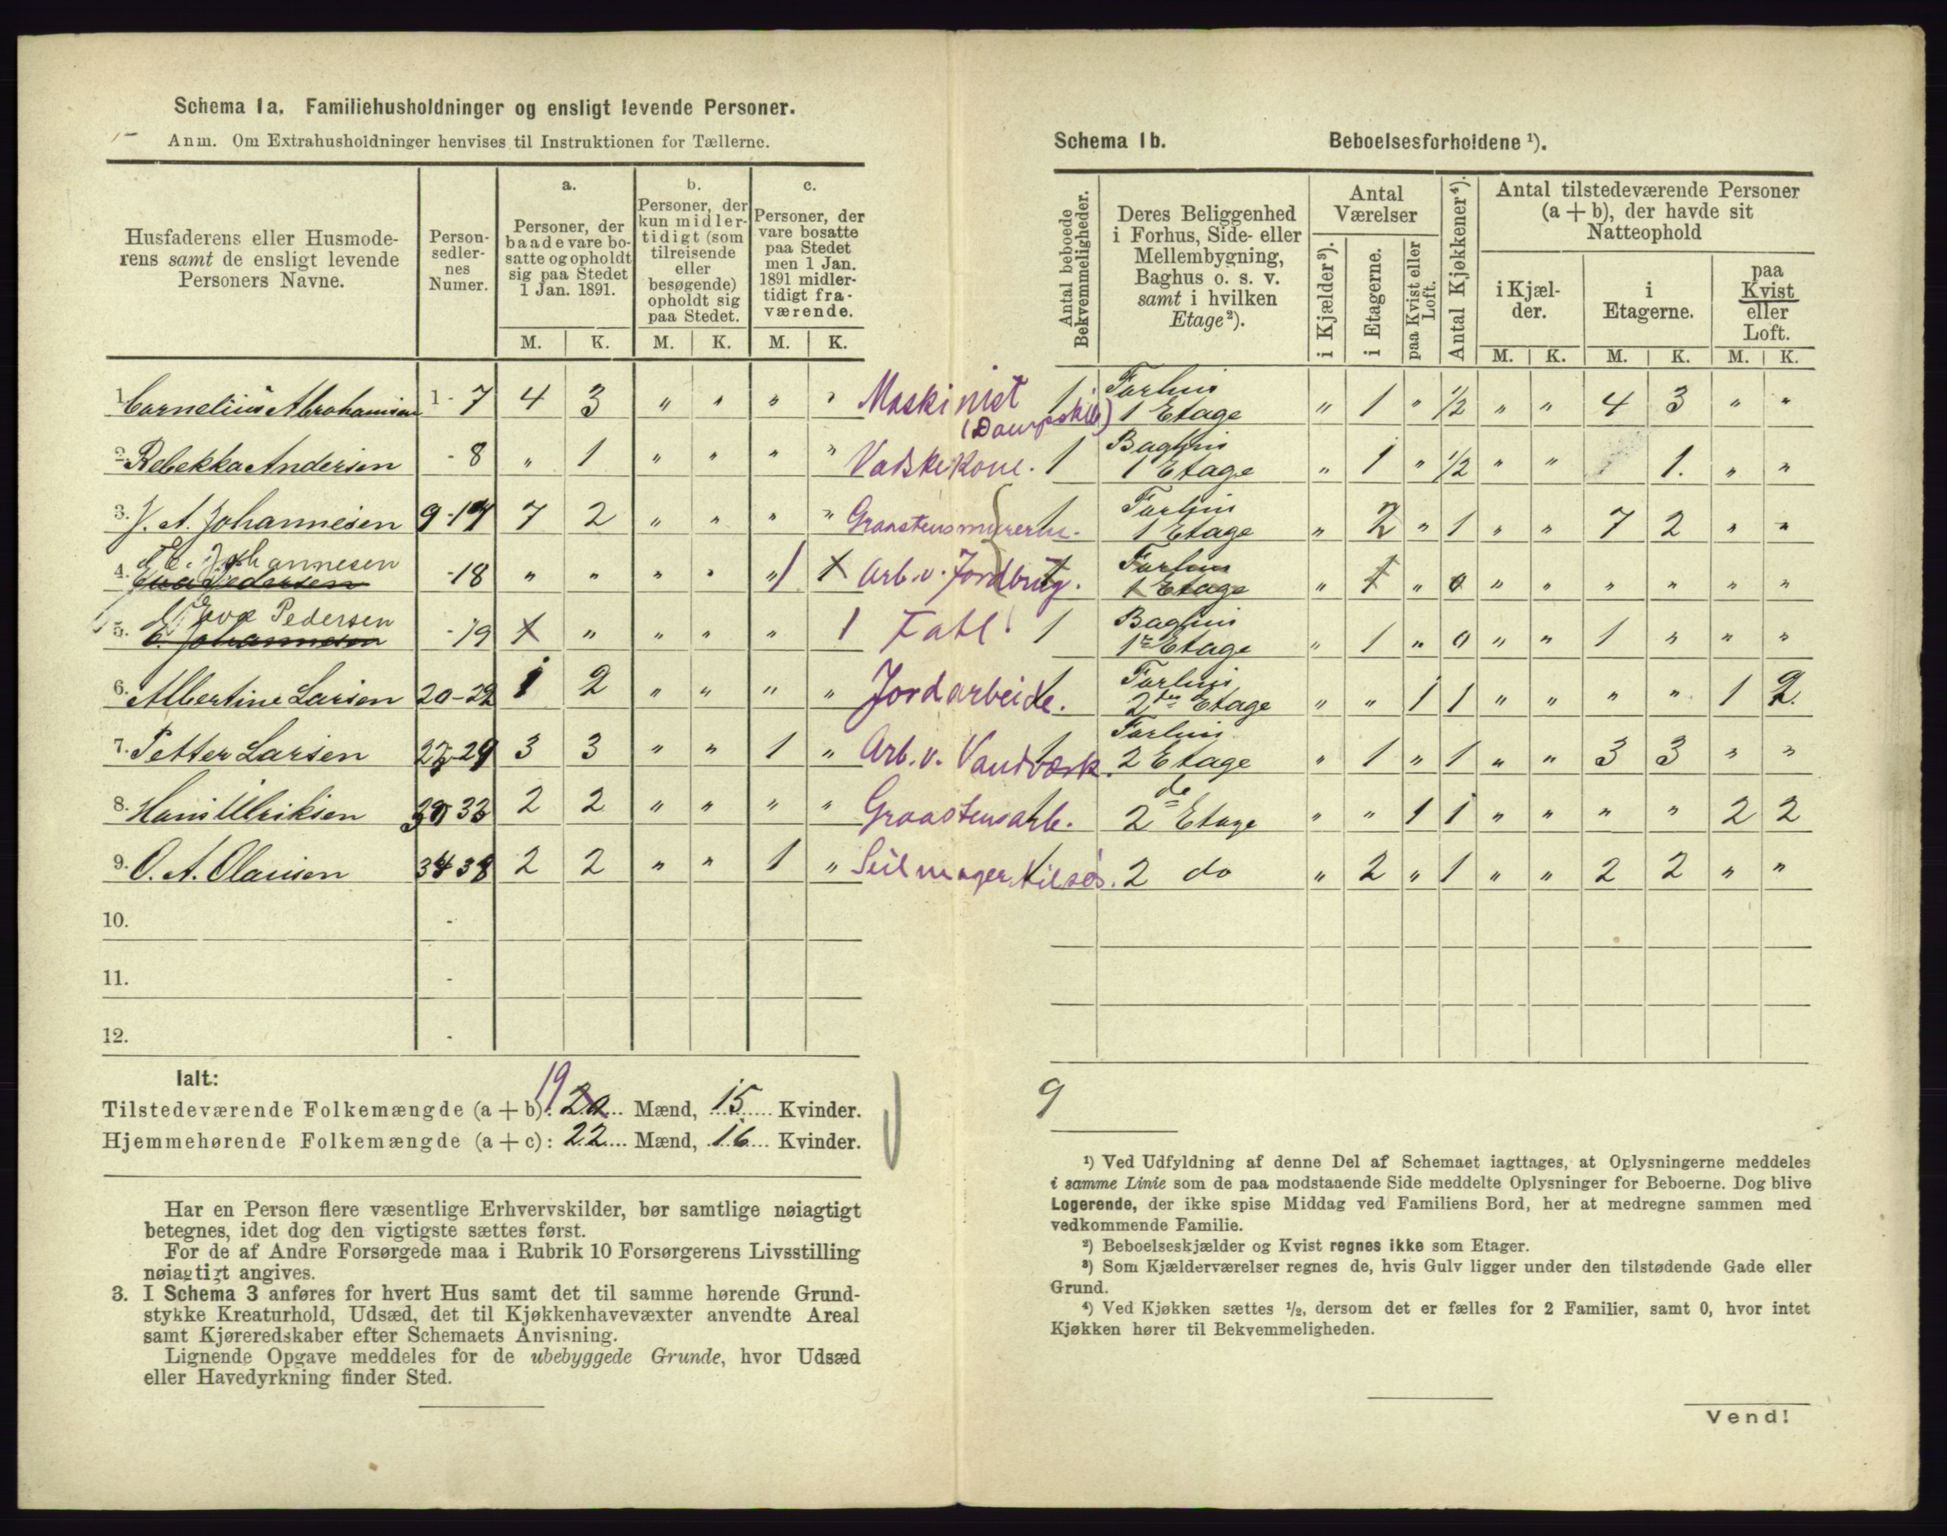 Schema 1a. Familiehusholdninger og ensligt levende Personer.
Anm. Om Extrahusholdninger henvises til Instruktionen for Tællerne.
Husfaderens eller Husmoderens samt de ensligt levende Personers Navne.
Personsedlernes Numer.
a. Personer, der baade vare bosatte og opholdt sig paa Stedet 1 Jan. 1891.
b. Personer, der kun midlertidigt (som tilreisende eller besøgende) opholdt sig paa Stedet.
c. Personer, der vare bosatte paa Stedet men 1 Jan. 1891 midlertidigt fraværende.
M. K. M. K. M. K.
1. Cornelius Abrahamsen 1-7 4 3 " " " " Maskinist (Dampskib)
2. Rebekka Andersen -8 " 1 " " " " Vadskekone.
3. J. A. Johannesen 9-17 7 2 " " " " Graastensmurerm.
4. E. Johannesen Eva Pedersen -18 " " " " 1 Arb. v. Jordbrug.
5. Eva Pedersen E. Johannesen -19 " " " " 1 Fatl.
6. Albertine Larsen 20-22 1 2 " " " " Jordarbeide.
7. Petter Larsen 23-29 3 3 " " 1 " Arb. v. Vandværk.
8. Hans Ulriksen 30 33 2 2 " " " " Graastensarb.
9. O. A. Olausen 34 38 2 2 " " 1 " Seilmager tilsøs.
10. -
11. -
12. -
Ialt:
Tilstedeværende Folkemængde (a + b): 19 20 Mænd, 15 Kvinder.
Hjemmehørende Folkemængde (a + c): 22 Mænd, 16 Kvinder.
Har en Person flere væsentlige Erhvervskilder, bør samtlige nøiagtigt
betegnes, idet dog den vigtigste sættes først.
For de af Andre Forsørgede maa i Rubrik 10 Forsørgerens Livsstilling
nøiagtigt angives.
3. I Schema 3 anføres for hvert Hus samt det til samme hørende Grund-
stykke Kreaturhold, Udsæd, det til Kjøkkenhavevæxter anvendte Areal
samt Kjøreredskaber efter Schemaets Anvisning.
Lignende Opgave meddeles for de ubebyggede Grunde, hvor Udsæd
eller Havedyrkning finder Sted.
Schema 1b. Beboelsesforholdene ¹).
Antal beboede Bekvemmeligheder.
Deres Beliggenhed i Forhus, Side- eller Mellembygning, Baghus o. s. v. samt i hvilken Etage²).
Antal Værelser
i Kjælder³).
i Etagerne.
paa Kvist eller Loft.
Antal Kjøkkener⁴).
Antal tilstedeværende Personer (a + b), der havde sit Natteophold
i Kjælder.
i Etagerne.
paa Kvist eller Loft.
M. K. M. K. M. K.
1 Forhus 1 Etage " 1 " 1/2 " " 4 3 " "
1 Baghus 1 Etage " 1 " 1/2 " " 1. " "
1 Forhus 1 Etage " 2 " 1 " " 7 2 " "
1 Forhus 1 Etage " 1 " 0 " " " " " "
1 Baghus 1 Etage " 1 " 0 " " 1 " " "
1 Forhus 2den Etage " " 1 1 " " " " 1 2.
1 Forhus 2 Etage " 1 " 1 " " 3 3 " "
1 do 2 Etage " " 1 1 " " " " 2 2
1 2 do " 2 " 1 " " 2 2 " "
9
¹) Ved Udfyldning af denne Del af Schemaet iagttages, at Oplysningerne meddeles
i samme Linie som de paa modstaaende Side meddelte Oplysninger for Beboerne. Dog blive
Logerende, der ikke spise Middag ved Familiens Bord, her at medregne sammen med
vedkommende Familie.
²) Beboelseskjælder og Kvist regnes ikke som Etager.
³) Som Kjælderværelser regnes de, hvis Gulv ligger under den tilstødende Gade eller
Grund.
⁴) Ved Kjøkken sættes ½, dersom det er fælles for 2 Familier, samt 0, hvor intet
Kjøkken hører til Bekvemmeligheden.
Vend!